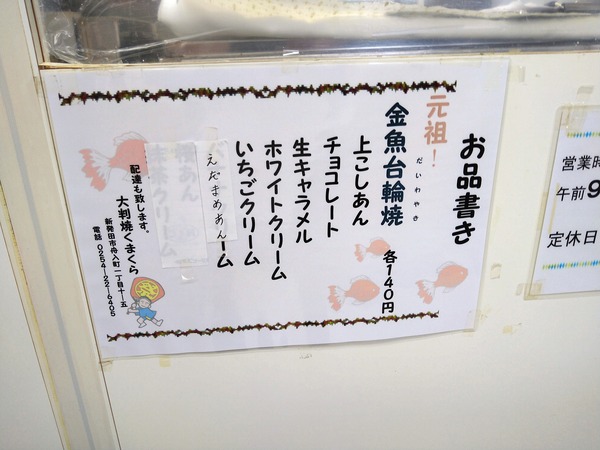 お品書き
元祖！
金魚台輪焼
だいわやき
各140円
上こしあん
チョコレート
生キャラメル
ホワイトクリーム
いちごクリーム
えだまめあん
ーム
桜あん
抹茶クリーム
配達も致します。
大判焼くまくら
新発田市舟入町一丁目十ー五
電話 0254-22-6405
営業時
午前9
定休日